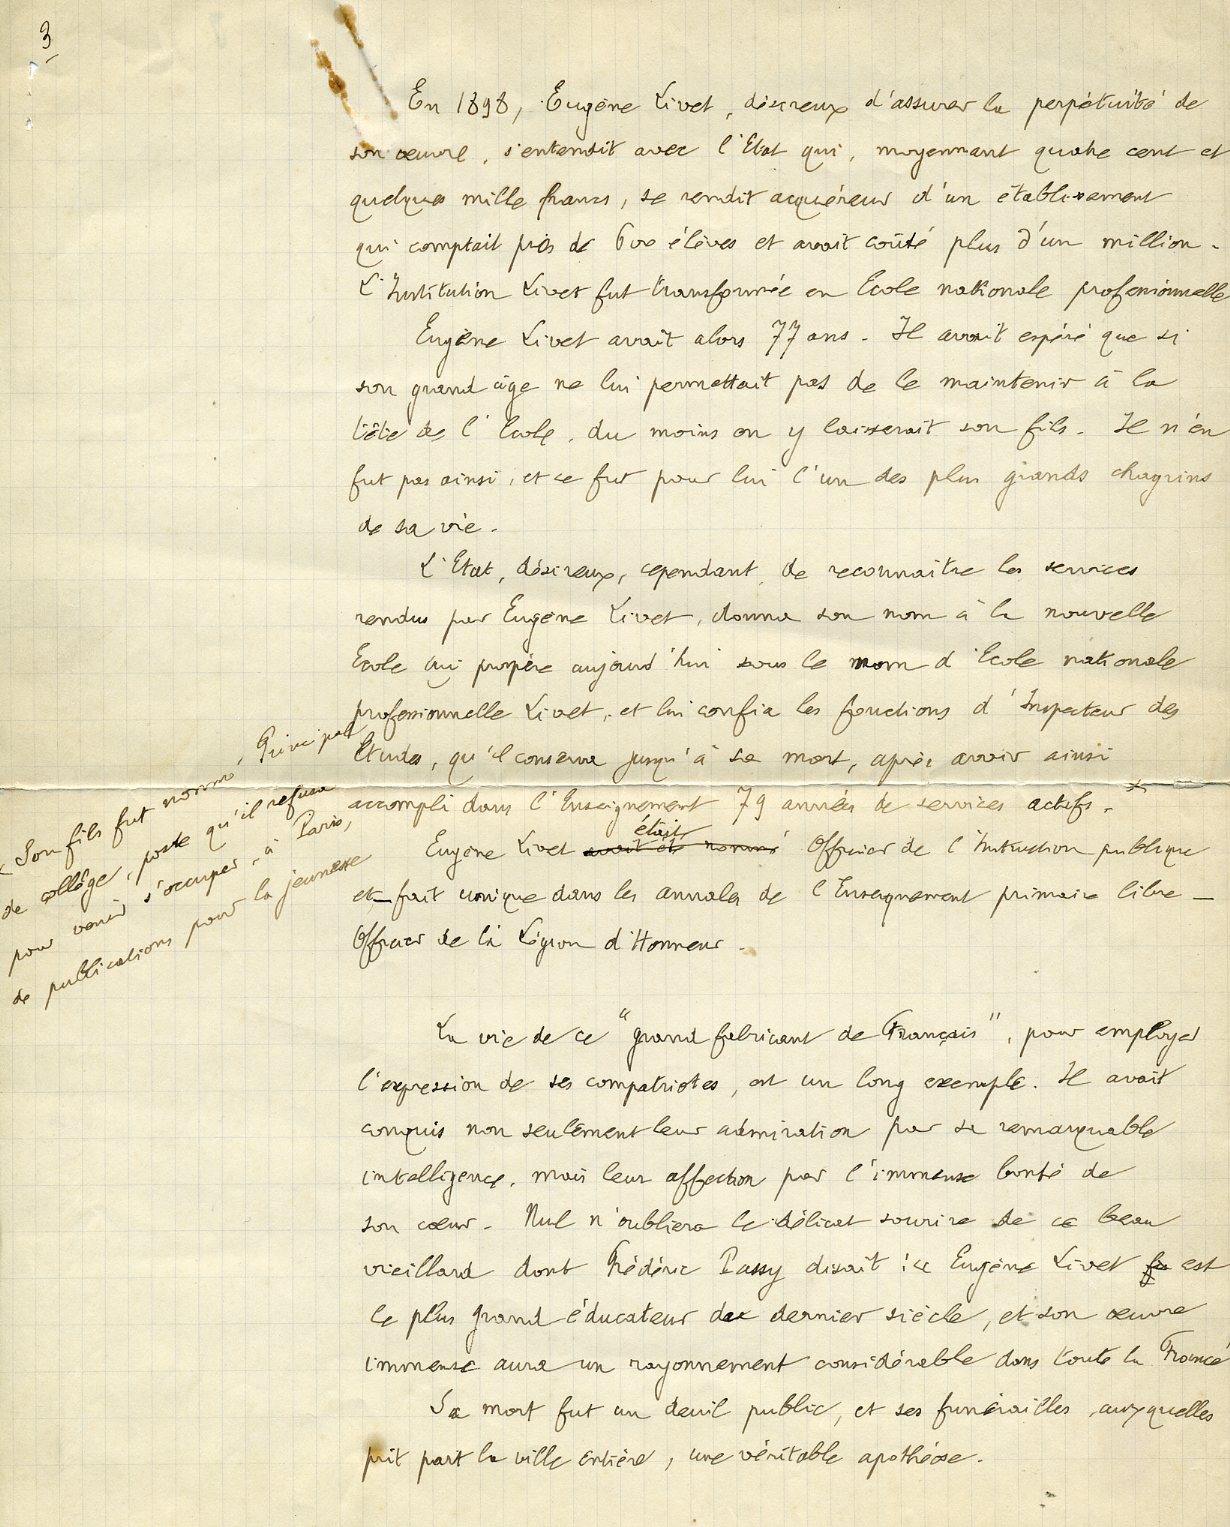 3
En 1898, Eugène Livet, désireux d'assurer la perpétuité de
son œuvre, s'entendit avec l'Etat qui, moyennant quatre cent et
quelques mille francs, se rendit acquéreur d'un établissement
qui comptait près de 600 élèves et avait coûté plus d'un million.
L'Institution Livet fut transformée en Ecole nationale professionnelle
Eugène Livet avait alors 77 ans. Il avait espéré que si
son grand âge ne lui permettait pas de le maintenir à la
tête de l'Ecole, du moins on y laisserait son fils. Il n'en
fut pas ainsi, et ce fut pour lui l'un des plus grands chagrins
de sa vie.
L'Etat, désireux, cependant, de reconnaître les services
rendus par Eugène Livet, donna son nom à la nouvelle
Ecole qui prospère aujourd'hui sous le nom d'Ecole nationale
professionnelle Livet, et lui confia les fonctions d'Inspecteur des
Etudes, qu'il conserva jusqu'à sa mort, après avoir ainsi
accompli dans l'Enseignement 79 années de services actifs. *
* Son fils fut nommé Principal
de collège, poste qu'il refusa
pour venir s'occuper, à Paris,
de publications pour la jeunesse
était
Eugène Livet avait été nommé Officier de l'Instruction publique
et _ fait unique dans les annales de l'Enseignement primaire libre _
Officier de la Légion d'Honneur.
La vie de ce "grand fabricant de Français", pour employer
l'expression de ses compatriotes, est un long exemple. Il avait
conquis non seulement leur admiration par sa remarquable
intelligence, mais leur affection par l'immense bonté de
son cœur. Nul n'oubliera le délicat sourire de ce beau
vieillard dont Frédéric Passy disait : "Eugène Livet est
le plus grand éducateur du dernier siècle, et son œuvre
immense aura un rayonnement considérable dans toute la France
Sa mort fut un deuil public, et ses funérailles, auxquelles
prit part la ville entière, une véritable apothéose.